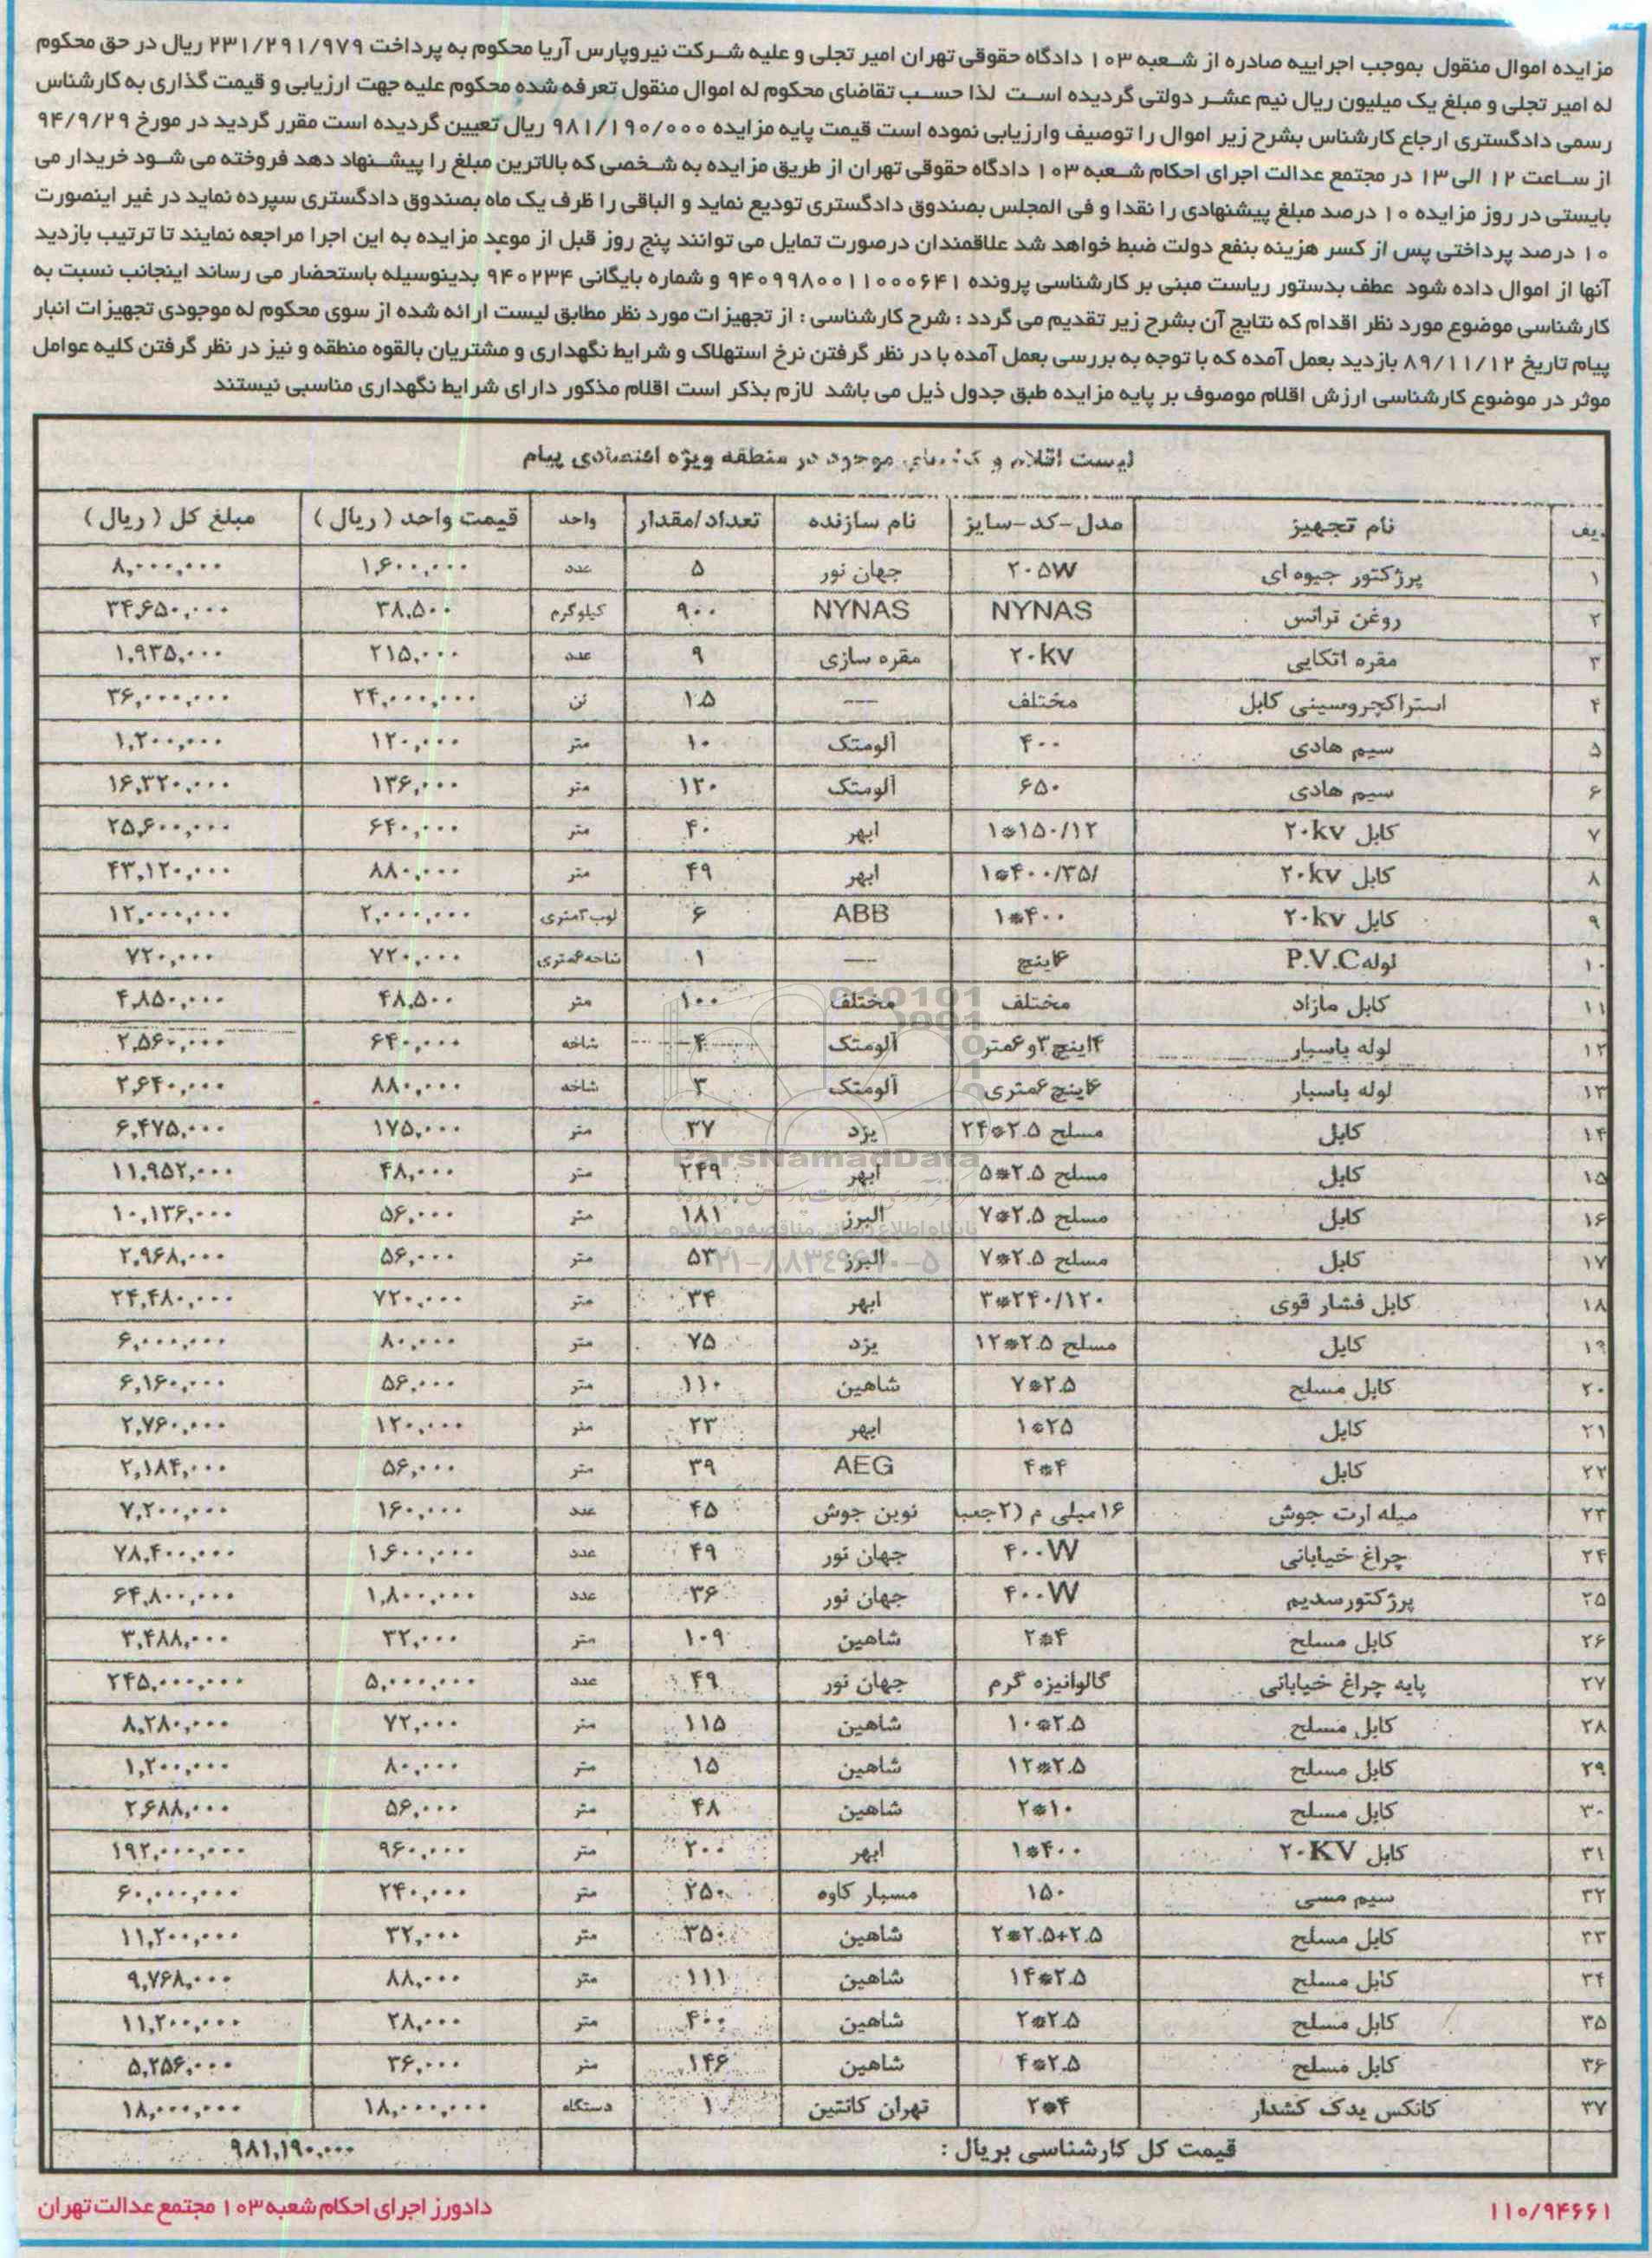 مزایده اموال منقول بموجب اجراییه صادره از شعبه ۱۰۳ دادگاه حقوقی تهران امیر تجلی و علیه شرکت نیروپارس آریا محکوم به پرداخت ۲۳۱/۲۹۱/۹۷۹ ریال در حق محکوم
له امیر تجلی و مبلغ یک میلیون ریال نیم عشر دولتی گردیده است لذا حسب تقاضای محکوم له اموال منقول تعرفه شده محکوم علیه جهت ارزیابی و قیمت گذاری به کارشناس
رسمی دادگستری ارجاع کارشناس بشرح زیر اموال را توصیف وارزیابی نموده است قیمت پایه مزایده ۹۸۱/۱۹۰/۰۰۰ ریال تعیین گردیده است مقرر گردید در مورخ ۹۴/۹/۲۹
از ساعت ۱۲ الی ۱۳ در مجتمع عدالت اجرای احکام شعبه ۱۰۳ دادگاه حقوقی تهران از طریق مزایده به شخصی که بالاترین مبلغ را پیشنهاد دهد فروخته می شود خریدار می
بایستی در روز مزایده ۱۰ درصد مبلغ پیشنهادی را نقدا و فی المجلس بصندوق دادگستری تودیع نماید و الباقی را ظرف یک ماه بصندوق دادگستری سپرده نماید در غیر اینصورت
۱۰ درصد پرداختی پس از کسر هزینه بنفع دولت ضبط خواهد شد علاقمندان درصورت تمایل می توانند پنج روز قبل از موعد مزایده به این اجرا مراجعه نمایند تا ترتیب بازدید
آنها از اموال داده شود عطف بدستور ریاست مبنی بر کارشناسی پرونده ۹۴۰۹۹۸۰۰۱۱۰۰۰۶۴۱ و شماره بایگانی ۹۴۰۲۳۴ بدینوسیله باستحضار می رساند اینجانب نسبت به
کارشناسی موضوع مورد نظر اقدام که نتایج آن بشرح زیر تقدیم می گردد : شرح کارشناسی : از تجهیزات مورد نظر مطابق لیست ارائه شده از سوی محکوم له موجودی تجهیزات انبار
پیام تاریخ ۸۹/۱۱/۱۲ بازدید بعمل آمده که با توجه به بررسی بعمل آمده با در نظر گرفتن نرخ استهلاک و شرایط نگهداری و مشتریان بالقوه منطقه و نیز در نظر گرفتن کلیه عوامل
موثر در موضوع کارشناسی ارزش اقلام موصوف بر پایه مزایده طبق جدول ذیل می باشد لازم بذکر است اقلام مذکور دارای شرایط نگهداری مناسبی نیستند
لیست اقلام و موجود در منطقه ویژه اقتصادی پیام
ردیف نام تجهیز مدل-کد-سایز نام سازنده تعداد/مقدار واحد قیمت واحد (ریال) مبلغ کل (ریال)
۱ پرژکتور جیوه ای ۲۰۵W جهان نور ۵ عدد ۱,۶۰۰,۰۰۰ ۸,۰۰۰,۰۰۰
۲ روغن ترانس NYNAS NYNAS ۹۰۰ کیلوگرم ۳۸,۵۰۰ ۳۴,۶۵۰,۰۰۰
۳ مقره اتکایی ۲۰kv مقره سازی ۹ عدد ۲۱۵,۰۰۰ ۱,۹۳۵,۰۰۰
۴ استراکچروسینی کابل مختلف --- ۱.۵ تن ۲۴,۰۰۰,۰۰۰ ۳۶,۰۰۰,۰۰۰
۵ سیم هادی ۴۰۰ آلومتک ۱۰ متر ۱۲۰,۰۰۰ ۱,۲۰۰,۰۰۰
۶ سیم هادی ۶۵۰ آلومتک ۱۲۰ متر ۱۳۶,۰۰۰ ۱۶,۳۲۰,۰۰۰
۷ کابل ۲۰kv ۱*۱۵۰/۱۲ ابهر ۴۰ متر ۶۴۰,۰۰۰ ۲۵,۶۰۰,۰۰۰
۸ کابل ۲۰kv ۱*۴۰۰/۳۵/ ابهر ۴۹ متر ۸۸۰,۰۰۰ ۴۳,۱۲۰,۰۰۰
۹ کابل ۲۰kv ۱*۴۰۰ ABB ۶ لوپ ۲متری ۲,۰۰۰,۰۰۰ ۱۲,۰۰۰,۰۰۰
۱۰ لوله P.V.C ۶اینچ --- ۱ شاخه۶متری ۷۲۰,۰۰۰ ۷۲۰,۰۰۰
۱۱ کابل مازاد مختلف مختلف ۱۰۰ متر ۴۸,۵۰۰ ۴,۸۵۰,۰۰۰
۱۲ لوله باسبار ۴اینچ ۳و۶متر آلومتک ۴ شاخه ۶۴۰,۰۰۰ ۲,۵۶۰,۰۰۰
۱۳ لوله باسبار ۶اینچ ۶متری آلومتک ۳ شاخه ۸۸۰,۰۰۰ ۲,۶۴۰,۰۰۰
۱۴ کابل مسلح ۲.۵*۲۴ یزد ۳۷ متر ۱۷۵,۰۰۰ ۶,۴۷۵,۰۰۰
۱۵ کابل مسلح ۲.۵*۵ ابهر ۲۴۹ متر ۴۸,۰۰۰ ۱۱,۹۵۲,۰۰۰
۱۶ کابل مسلح ۲.۵*۷ البرز ۱۸۱ متر ۵۶,۰۰۰ ۱۰,۱۳۶,۰۰۰
۱۷ کابل مسلح ۲.۵*۷ البرز ۵۳ متر ۵۶,۰۰۰ ۲,۹۶۸,۰۰۰
۱۸ کابل فشار قوی ۳*۲۴۰/۱۲۰ ابهر ۳۴ متر ۷۲۰,۰۰۰ ۲۴,۴۸۰,۰۰۰
۱۹ کابل مسلح ۲.۵*۱۲ یزد ۷۵ متر ۸۰,۰۰۰ ۶,۰۰۰,۰۰۰
۲۰ کابل مسلح ۷*۲.۵ شاهین ۱۱۰ متر ۵۶,۰۰۰ ۶,۱۶۰,۰۰۰
۲۱ کابل ۱*۲۵ ابهر ۲۳ متر ۱۲۰,۰۰۰ ۲,۷۶۰,۰۰۰
۲۲ کابل ۴*۴ AEG ۳۹ متر ۵۶,۰۰۰ ۲,۱۸۴,۰۰۰
۲۳ میله ارت جوش ۱۶میلی م (۲جعبه نوین جوش ۴۵ عدد ۱۶۰,۰۰۰ ۷,۲۰۰,۰۰۰
۲۴ چراغ خیابانی ۴۰۰W جهان نور ۴۹ عدد ۱,۶۰۰,۰۰۰ ۷۸,۴۰۰,۰۰۰
۲۵ پرژکتورسدیم ۴۰۰W جهان نور ۳۶ عدد ۱,۸۰۰,۰۰۰ ۶۴,۸۰۰,۰۰۰
۲۶ کابل مسلح ۲*۴ شاهین ۱۰۹ متر ۳۲,۰۰۰ ۳,۴۸۸,۰۰۰
۲۷ پایه چراغ خیابانی گالوانیزه گرم جهان نور ۴۹ عدد ۵,۰۰۰,۰۰۰ ۲۴۵,۰۰۰,۰۰۰
۲۸ کابل مسلح ۱۰*۲.۵ شاهین ۱۱۵ متر ۷۲,۰۰۰ ۸,۲۸۰,۰۰۰
۲۹ کابل مسلح ۱۲*۲.۵ شاهین ۱۵ متر ۸۰,۰۰۰ ۱,۲۰۰,۰۰۰
۳۰ کابل مسلح ۲*۱۰ شاهین ۴۸ متر ۵۶,۰۰۰ ۲,۶۸۸,۰۰۰
۳۱ کابل ۲۰KV ۱*۴۰۰ ابهر ۲۰۰ متر ۹۶۰,۰۰۰ ۱۹۲,۰۰۰,۰۰۰
۳۲ سیم مسی ۱۵۰ مسبار کاوه ۲۵۰ متر ۲۴۰,۰۰۰ ۶۰,۰۰۰,۰۰۰
۳۳ کابل مسلح ۲*۲.۵+۲.۵ شاهین ۳۵۰ متر ۳۲,۰۰۰ ۱۱,۲۰۰,۰۰۰
۳۴ کابل مسلح ۱۴*۲.۵ شاهین ۱۱۱ متر ۸۸,۰۰۰ ۹,۷۶۸,۰۰۰
۳۵ کابل مسلح ۲*۲.۵ شاهین ۴۰۰ متر ۲۸,۰۰۰ ۱۱,۲۰۰,۰۰۰
۳۶ کابل مسلح ۴*۲.۵ شاهین ۱۴۶ متر ۳۶,۰۰۰ ۵,۲۵۶,۰۰۰
۳۷ کانکس یدک کشدار ۲*۴ تهران کانتین ۱ دستگاه ۱۸,۰۰۰,۰۰۰ ۱۸,۰۰۰,۰۰۰
قیمت کل کارشناسی بریال : ۹۸۱,۱۹۰,۰۰۰
ParsNamadData
۱۱۰/۹۴۶۶۱ دادورز اجرای احکام شعبه ۱۰۳ مجتمع عدالت تهران